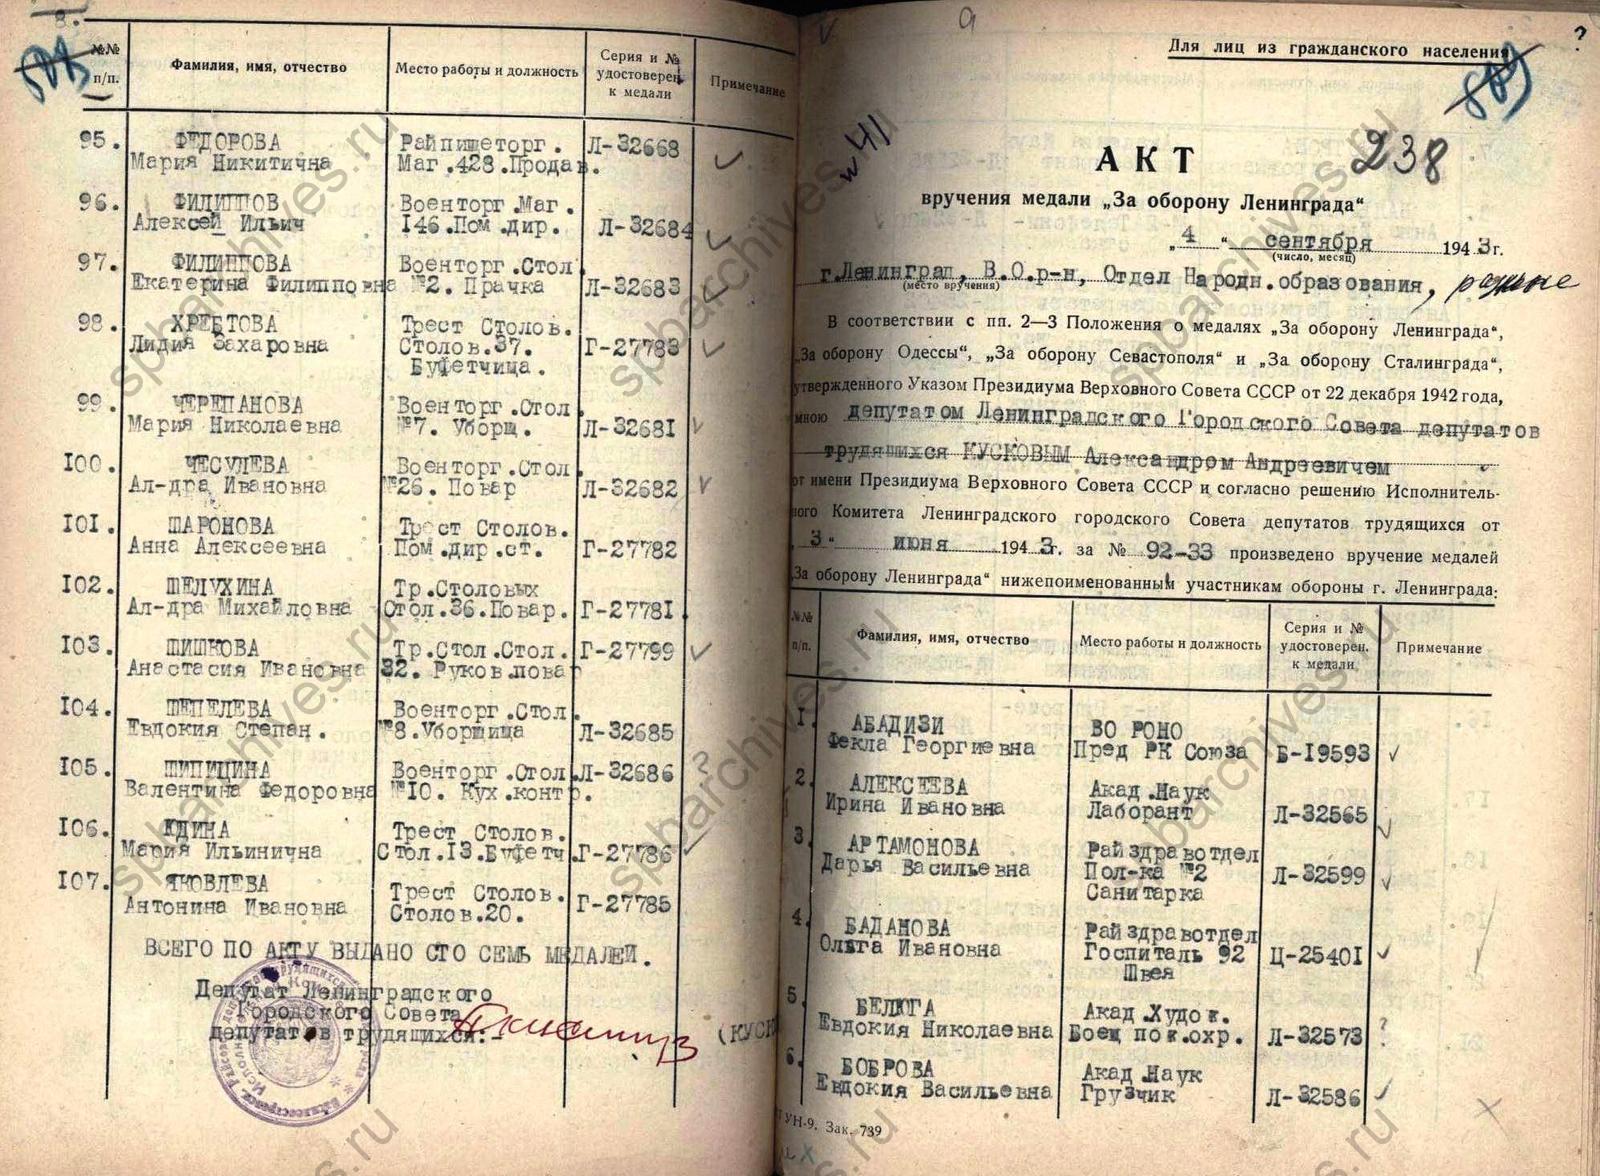 8.
№№ п/п.
Фамилия, имя, отчество
Место работы и должность
Серия и № удостоверен. к медали
Примечание
95. ФЕДОРОВА Райпищеторг. Л-32668
Мария Никитична Маг.428.Продав.
96. ФИЛИППОВ Военторг.Маг.
Алексей Ильич 146.Пом.дир. Л-32684
97. ФИЛИППОВА Военторг.Стол.
Екатерина Филипповна №2. Прачка Л-32683
98. ХРЕБТОВА Трест Столов.
Лидия Захаровна Столов.37. Г-27783
Буфетчица.
99. ЧЕРЕПАНОВА Военторг.Стол.
Мария Николаевна №7. Уборщ. Л-32681
100. ЧЕСУЛЕВА Военторг.Стол.
Ал-дра Ивановна №26. Повар Л-32682
101. ШАРОНОВА Трест Столов.
Анна Алексеевна Пом.дир.ст. Г-27782
102. ШЕЛУХИНА Тр.Столовых
Ал-дра Михайловна Стол.36.Повар. Г-27781
103. ШИШКОВА Тр.Стол.Стол. Г-27799
Анастасия Ивановна 32. Руков.повар
104. ШЕПЕЛЕВА Военторг.Стол.
Евдокия Степан. №8.Уборщица Л-32685
105. ШИПИЦИНА Военторг.Стол. Л-32686 ?
Валентина Федоровна №10. Кух.контр.
106. ЮДИНА Трест Столов.
Мария Ильинична Стол.13.Буфетч. Г-27786
107. ЯКОВЛЕВА Трест Столов. Г-27785
Антонина Ивановна Столов.20.
ВСЕГО ПО АКТУ ВЫДАНО СТО СЕМЬ МЕДАЛЕЙ.
Депутат Ленинградского
Городского Совета
депутатов трудящихся.-
(КУСК
9
?
Для лиц из гражданского населения
№41
АКТ 238
вручения медали „За оборону Ленинграда“
„4“ сентября 1943г.
(число, месяц)
г.Ленинград, В.О.р-н, Отдел Народн.образования, разные
(место вручения)
В соответствии с пп. 2—3 Положения о медалях „За оборону Ленинграда“,
„За оборону Одессы“, „За оборону Севастополя“ и „За оборону Сталинграда“,
утвержденного Указом Президиума Верховного Совета СССР от 22 декабря 1942 года,
мною депутатом Ленинградского Городского Совета депутатов
трудящихся КУСКОВЫМ Александром Андреевичем
от имени Президиума Верховного Совета СССР и согласно решению Исполнитель-
ного Комитета Ленинградского городского Совета депутатов трудящихся от
„3“ июня 1943г. за № 92-33 произведено вручение медалей
„За оборону Ленинграда“ нижепоименованным участникам обороны г. Ленинграда:
№№ п/п.
Фамилия, имя, отчество
Место работы и должность
Серия и № удостоверен. к медали
Примечание
1. АБАДИЗИ ВО РОНО
Фекла Георгиевна Пред РК Союза Б-19593
2. АЛЕКСЕЕВА Акад.Наук
Ирина Ивановна Лаборант Л-32565
3. АРТАМОНОВА Райздравотдел
Дарья Васильевна Пол-ка №2 Л-32599
Санитарка
4. БАДАНОВА Райздравотдел
Ольга Ивановна Госпиталь 92 Ц-25401
Швея
5. БЕЛЮГА Акад.Худож.
Евдокия Николаевна Боец пож.охр. Л-32573 ?
6. БОБРОВА Акад.Наук
Евдокия Васильевна Грузчик Л-32586
УН-9. Зак. 739
spbarchives.ru